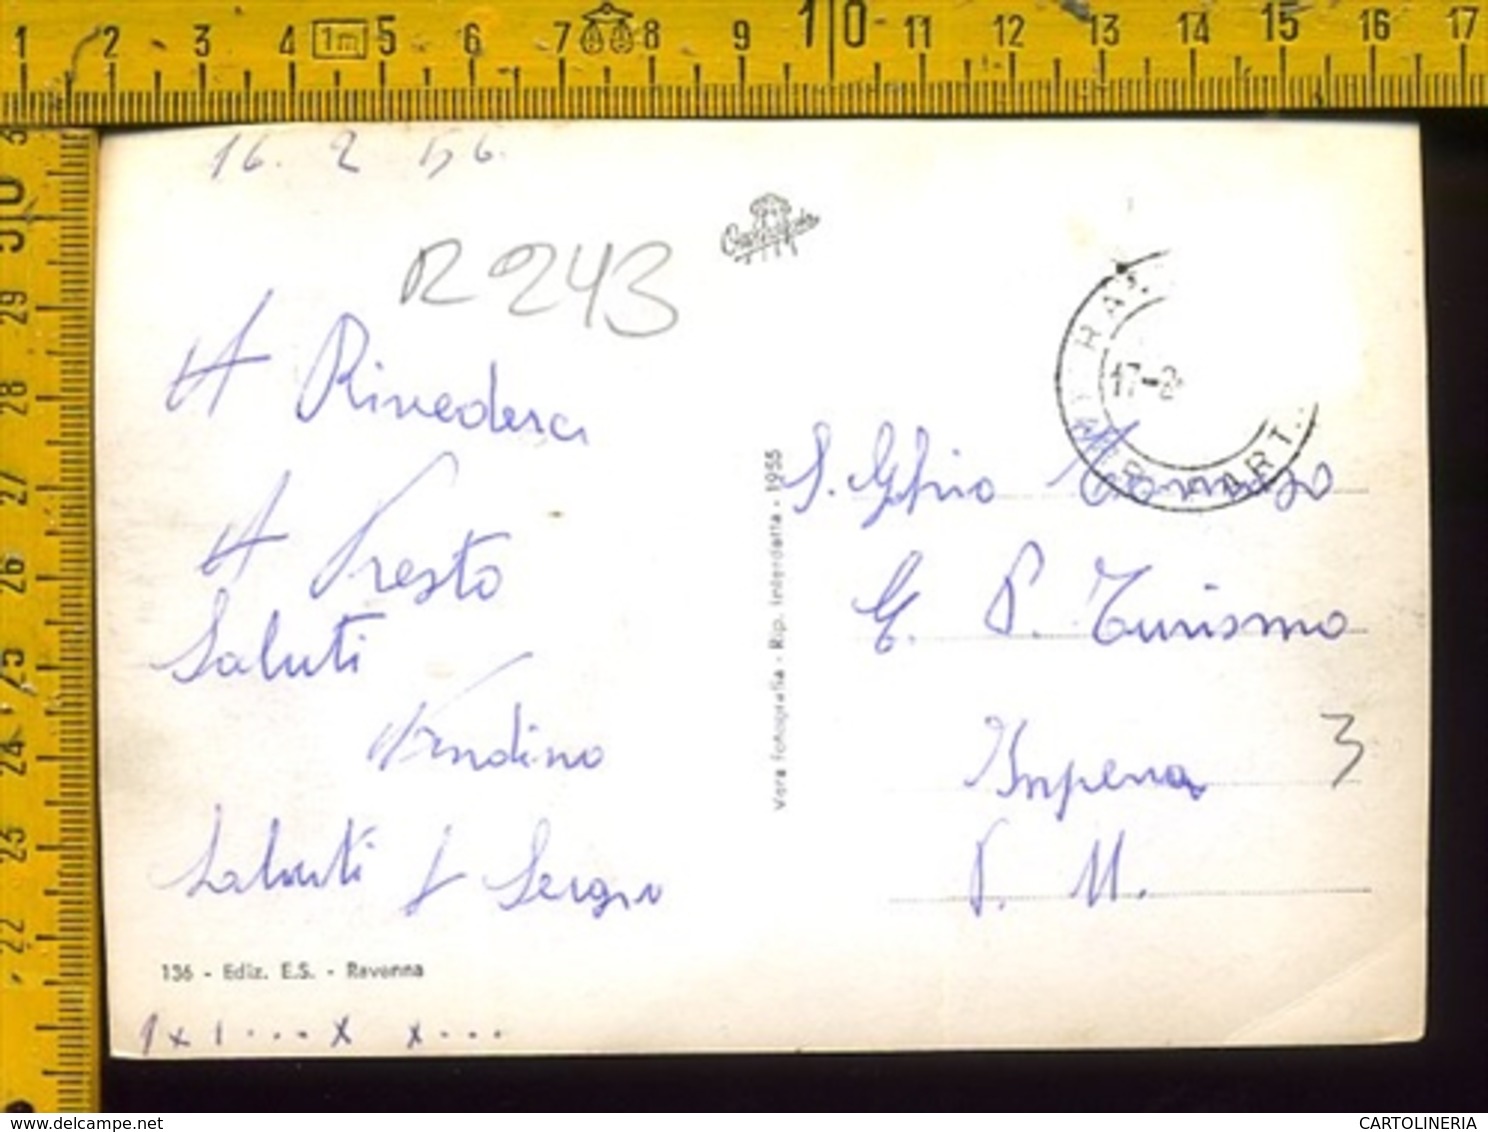 1 2 3 4 1m 5 6 7 8 9 10 11 12 13 14 15 16 17
16. 2 56.
R 243
A Rivederci
A Presto
Saluti
Saluti
136 - Ediz. E.S. - Ravenna
1 x 1 . . . . x x . . .
Vera Fotografia - Rip. Interdetta - 1955
17-2
PART.
S. Ghio
E. P. Turismo
Imperia
3
P. M.
29
28
27
26
25
24
23
22
CARTOLINERIA
https://www.delcampe.net